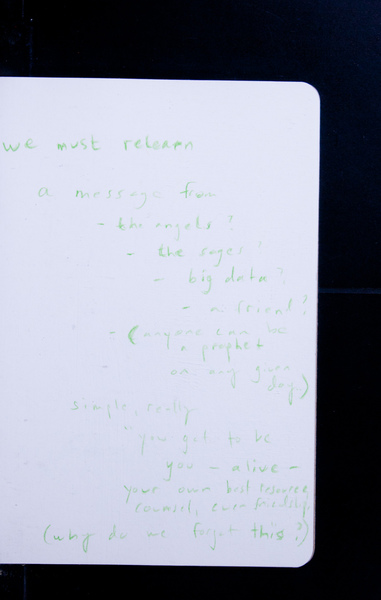 we must relearn
a message from
- the angels?
- the sages?
- big data?
- a friend?
- (anyone can be
a prophet
- on any given
day)
simple, really
"you get to be
you - alive -
your own best resource,
counsel, even friendship.
(why do we forget this?)